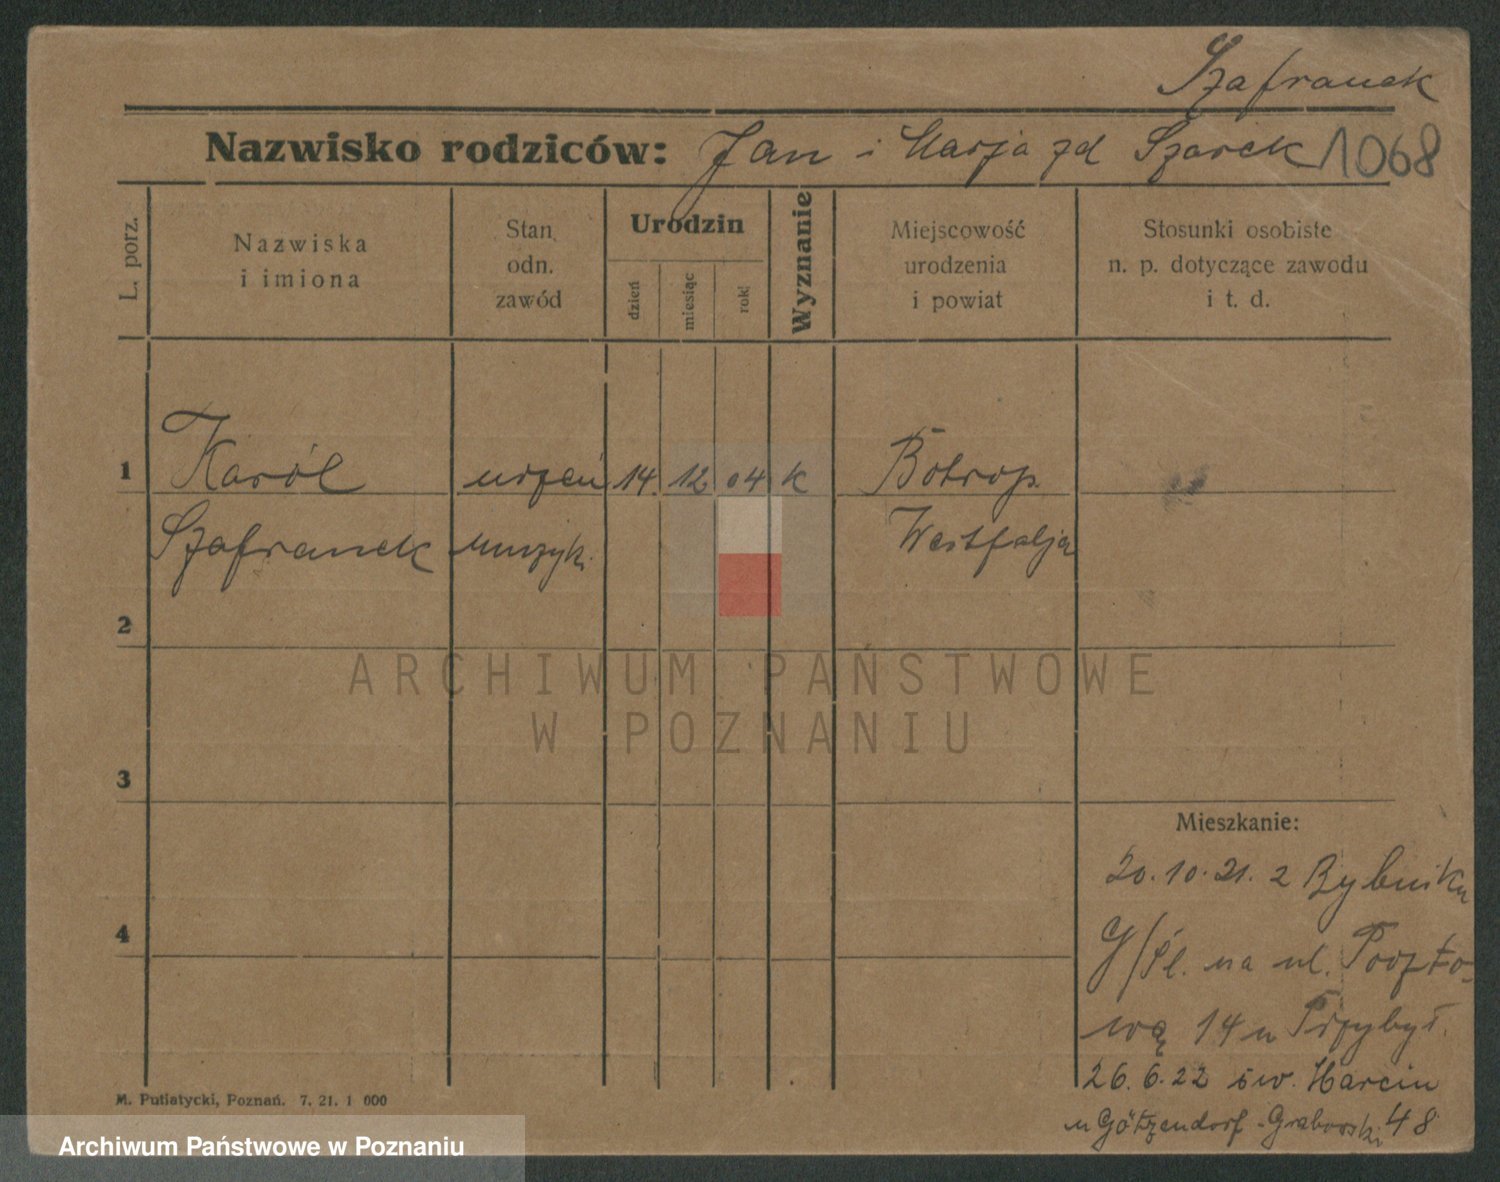 Szafranek
Nazwisko rodziców: Jan i Marja zd Szarek 1068
L. porz.
Nazwiska
i imiona
Stan
odn.
zawód
Urodzin
dzień
miesiąc
rok
Wyznanie
Miejscowość
urodzenia
i powiat
Stosunki osobiste
n. p. dotyczące zawodu
i t. d.
1 Karól uczeń 14. 12 04 k Botrop.
Szafranek muzyk. Westfalja
2
ARCHIWUM PAŃSTWOWE
W POZNANIU
3
Mieszkanie:
20.10.21. z Rybnika
4
G/Śl. na ul. Poczto-
wą 14 u Przybył.
26.6.22 św. Marcin
u Götzendorf-Grabowski 48
M. Putiatycki, Poznań. 7. 21. 1 000
Archiwum Państwowe w Poznaniu